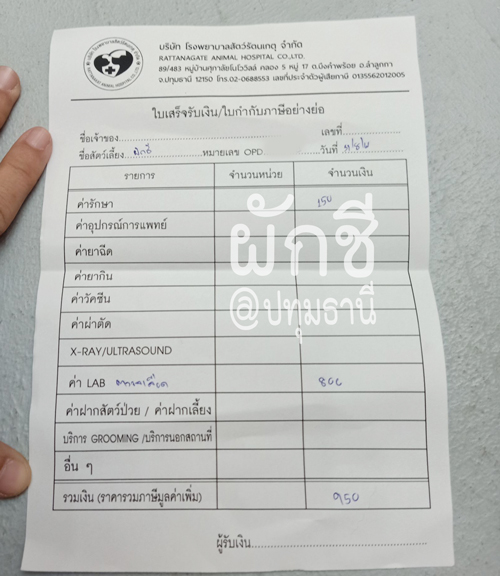 บริษัท โรงพยาบาลสัตว์รัตนเกตุ จำกัด
RATTANAGATE ANIMAL HOSPITAL CO.,LTD.
89/483 หมู่บ้านศุภาลัยโนโววิลล์ คลอง 5 หมู่ 17 ต.บึงคำพร้อย อ.ลำลูกกา
จ.ปทุมธานี 12150 โทร.02-0688553 เลขที่ประจำตัวผู้เสียภาษี 0135562012005
ใบเสร็จรับเงิน/ใบกำกับภาษีอย่างย่อ
ชื่อเจ้าของ เลขที่
ชื่อสัตว์เลี้ยง ผักชี หมายเลข OPD วันที่
รายการ จำนวนหน่วย จำนวนเงิน
ค่ารักษา 150
ค่าอุปกรณ์การแพทย์
ค่ายาฉีด
ค่ายากิน
ค่าวัคซีน
ค่าผ่าตัด
X-RAY/ULTRASOUND
ค่า LAB ตรวจเลือด 800
ค่าฝากสัตว์ป่วย / ค่าฝากเลี้ยง
บริการ GROOMING /บริการนอกสถานที่
อื่น ๆ
รวมเงิน (ราคารวมภาษีมูลค่าเพิ่ม) 950
ผู้รับเงิน
ผักชี
@ปทุมธานี